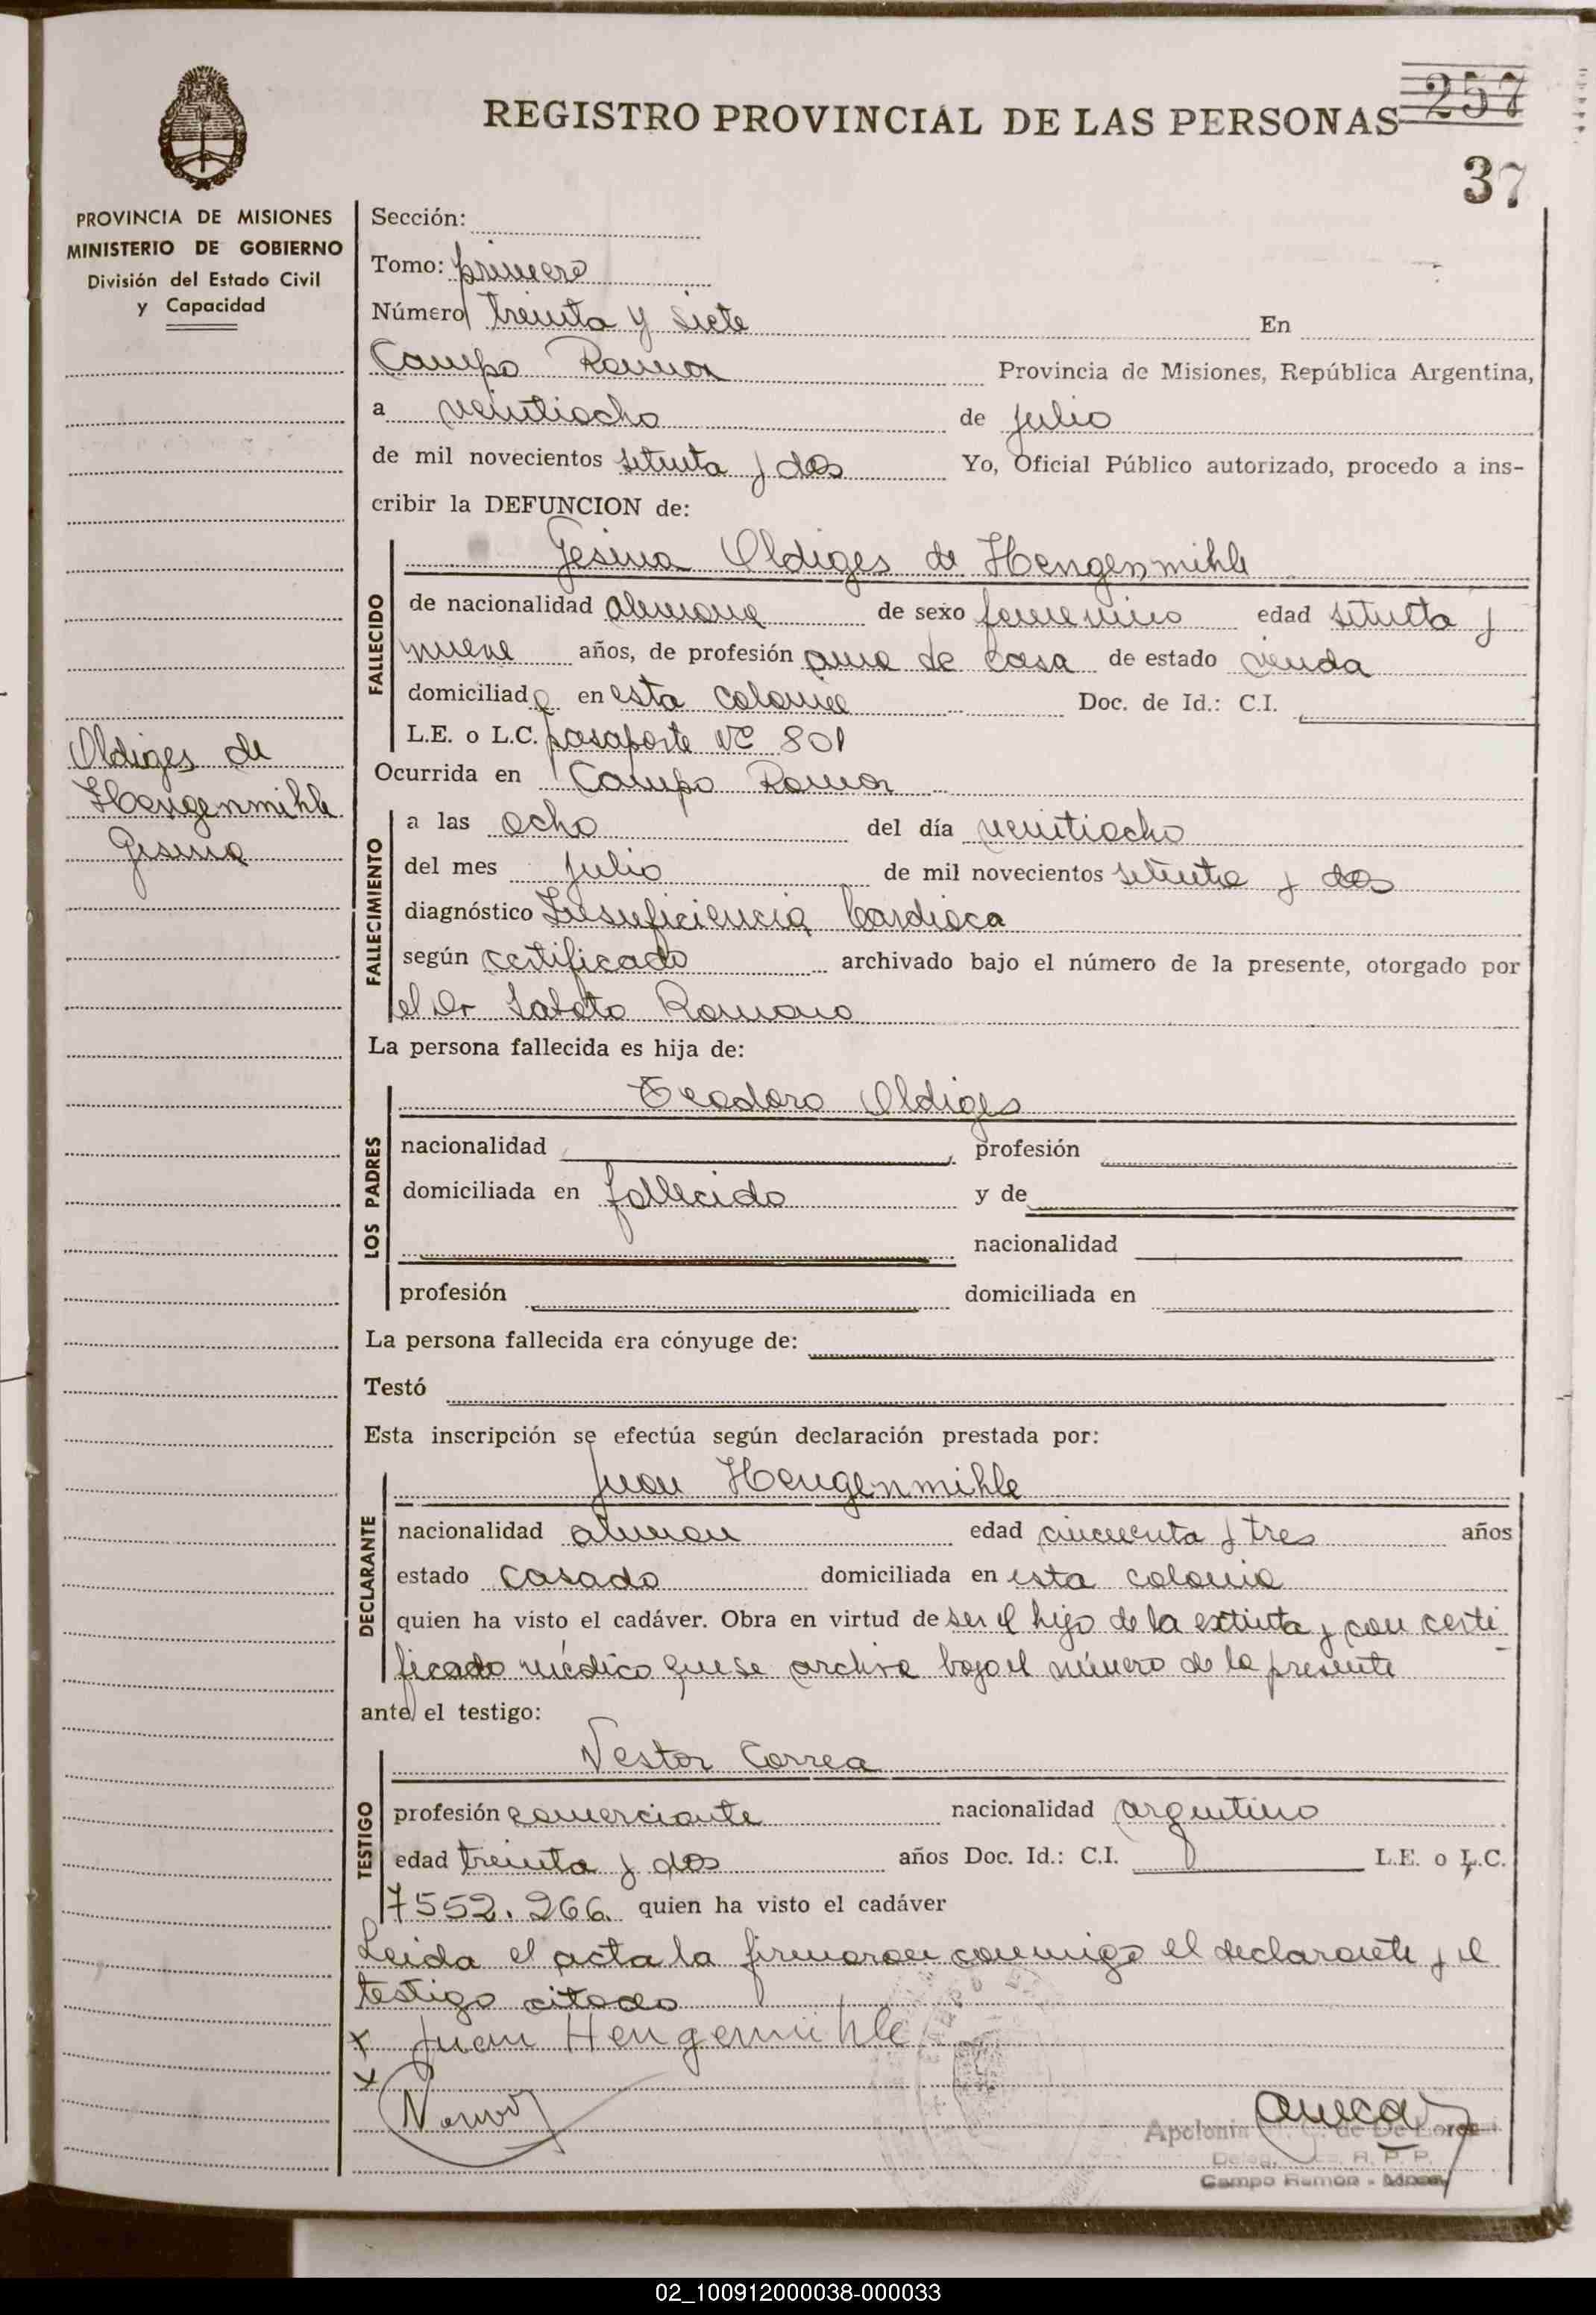 REGISTRO PROVINCIAL DE LAS PERSONAS
257
37
PROVINCIA DE MISIONES
MINISTERIO DE GOBIERNO
División del Estado Civil
y Capacidad
Oldiges de
Hengenmihle
Gesina
Sección:
Tomo: primero
Número treinta y siete En
Campo Ramon Provincia de Misiones, República Argentina,
a veintiocho de julio
de mil novecientos setenta y dos Yo, Oficial Público autorizado, procedo a ins-
cribir la DEFUNCION de:
FALLECIDO
Gesina Oldiges de Hengenmihle
de nacionalidad alemana de sexo femenino edad setenta y
nueve años, de profesión ama de casa de estado viuda
domiciliada en esta colonia Doc. de Id.: C.I.
L.E. o L.C. pasaporte Nº 801
Ocurrida en Campo Ramon
FALLECIMIENTO
a las ocho del día veintiocho
del mes julio de mil novecientos setenta y dos
diagnóstico Insuficiencia Cardiaca
según certificado archivado bajo el número de la presente, otorgado por
el Dr Sabato Romano
La persona fallecida es hija de:
LOS PADRES
Teodoro Oldiges
nacionalidad profesión
domiciliada en fallecido y de
nacionalidad
profesión domiciliada en
La persona fallecida era cónyuge de:
Testó
Esta inscripción se efectúa según declaración prestada por:
DECLARANTE
Juan Hengenmihle
nacionalidad aleman edad cincuenta y tres años
estado casado domiciliada en esta colonia
quien ha visto el cadáver. Obra en virtud de ser el hijo de la extinta y con certi
ficado médico que se archiva bajo el número de la presente
ante el testigo:
TESTIGO
Nestor Correa
profesión comerciante nacionalidad argentino
edad treinta y dos años Doc. Id.: C.I. L.E. o L.C.
7552.266 quien ha visto el cadáver
Leida el acta la firmaron conmigo el declarante y el
testigo citado
x Juan Hengenmihle
x
Apolonia de De Lorea
Deleg. R. P. P.
Campo Ramon - Mnes.
02_100912000038-000033